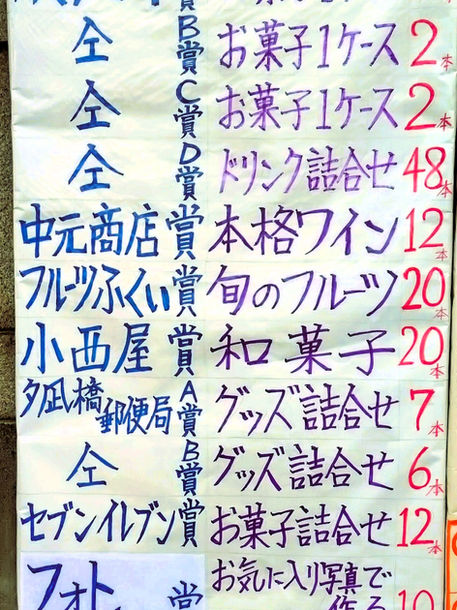 仝 B賞 お菓子1ケース 2本
仝 C賞 お菓子1ケース 2本
仝 D賞 ドリンク詰合せ 48本
中元商店賞 本格ワイン 12本
フルーツふくい賞 旬のフルーツ 20本
小西屋賞 和菓子 20本
夕凪橋郵便局 A賞 グッズ詰合せ 7本
仝 B賞 グッズ詰合せ 6本
セブンイレブン賞 お菓子詰合せ 12本
フォト 賞 お気に入り写真で
作る 10